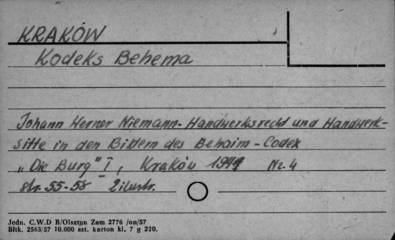 KRAKÓW
Kodeks Behema
Johann Werner Niemann - Handwerksrecht und Handwerk-
sitte in den Bildern des Behaim-Codex
„Die Burg" I, Kraków Nr. 4
str. 55-58 2 ilustr.
Jedn. C.W.D B/Olsztyn Zam 2776 /on/57
Bltk. 2563/57 10.000 szt. karton kl. 7 g 220.